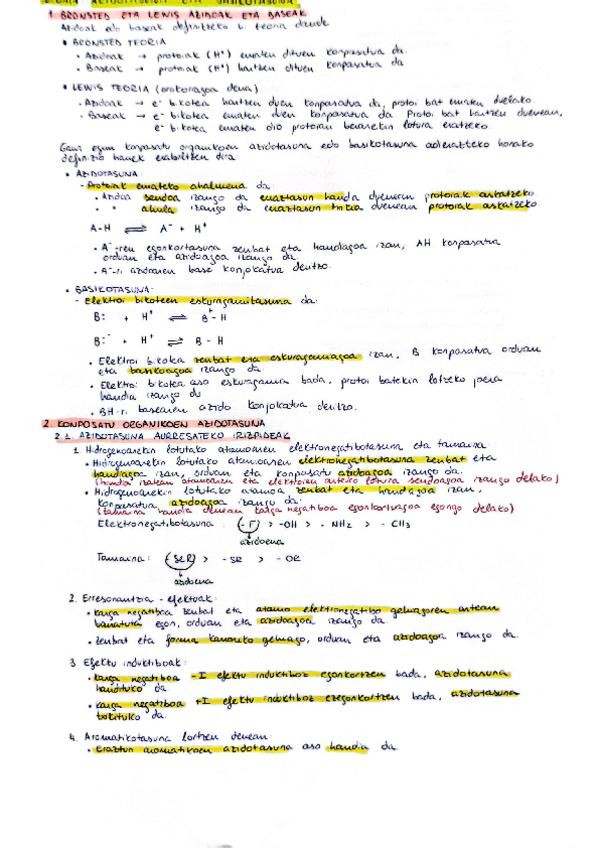 AZIDOTASUNA ETA BASIKOTASUNA
1. BRONSTED ETA LEWIS AZIDOAK ETA BASEAK
Azidoak edo baseak definitzeko bi teoria daude
• BRONSTED TEORIA
• Azidoak → protoiak (H⁺) ematen dituen konposatua da.
• Baseak → protoiak (H⁺) hartzen dituen konposatua da
• LEWIS TEORIA (orokorragoa dena)
• Azidoak → e⁻ bikotea hartzen duen konposatua da, protoi bat ematen duelako.
• Baseak → e⁻ bikotea ematen duen konposatua da Protoi bat hartzen duenean,
e⁻ bikotea ematen dio protoiari berarekin lotura eratzeko.
Gaur egun konposatu organikoen azidotasuna edo basikotasuna adierazteko honako
definizio hauek erabiltzen dira
• AZIDOTASUNA:
- Protoiak emateko ahalmena da
• Azidoa sendoa izango da erraztasun handia duenean protoiak askatzeko
• " ahula izango da erraztasun txikia duenean protoiak askatzeko.
A-H ⇌ A⁻ + H⁺
• A⁻-ren egonkortasuna zenbat eta handiagoa izan, AH konposatua
orduan eta azidoagoa izango da
• A⁻-ri azidoaren base konjokatua deritzo.
• BASIKOTASUNA:
- Elektroi bikoteen eskuragarritasuna da:
B: + H⁺ ⇌ B⁺-H
B:⁻ + H⁺ ⇌ B-H
• Elektroi bikotea zenbat eta eskuragarriagoa izan, B konposatua orduan
eta basikoagoa izango da
• Elektroi bikotea oso eskuragarria bada, protoi batekin lotzeko joera
handia izango du
• BH-ri basearen azido konjokatua deritzo.
2. KONPOSATU ORGANIKOEN AZIDOTASUNA
2.1. AZIDOTASUNA AURRESATEKO IRIZPIDEAK
1. Hidrogenoarekin lotutako atomoaren elektronegatibotasuna eta tamaina
• Hidrogenoarekin lotutako atomoaren elektronegatibotasuna zenbat eta
handiagoa izan, orduan eta konposatu azidoagoa izango da.
(handia izatean atomoaren eta elektroien arteko lotura sendoagoa izango delako)
• Hidrogenoarekin lotutako atomoa, zenbat eta handiagoa izan,
konposatua azidoagoa izango da.
(tamaina handia denean karga negatiboa egonkorragoa egongo delako)
Elektronegatibotasuna: (-F) > -OH > -NH₂ > -CH₃
azidoena
Tamaina: (-SeR) > -SR > -OR
azidoena
2. Erresonantzia - efektuak:
• karga negatiboa zenbat eta atomo elektronegatibo gehiagoren artean
banatuta egon, orduan eta azidoagoa izango da.
• zenbat eta forma kanoniko gehiago, orduan eta azidoagoa izango da.
3 Efektu induktiboak:
• karga negatiboa -I efektu induktiboz egonkortzen bada, azidotasuna
handituko da
• karga negatiboa +I efektu induktiboz ezegonkortzen bada, azidotasuna
txikituko da.
4. Aromatikotasuna lortzen denean:
• Eraztun aromatikoen azidotasuna oso handia da